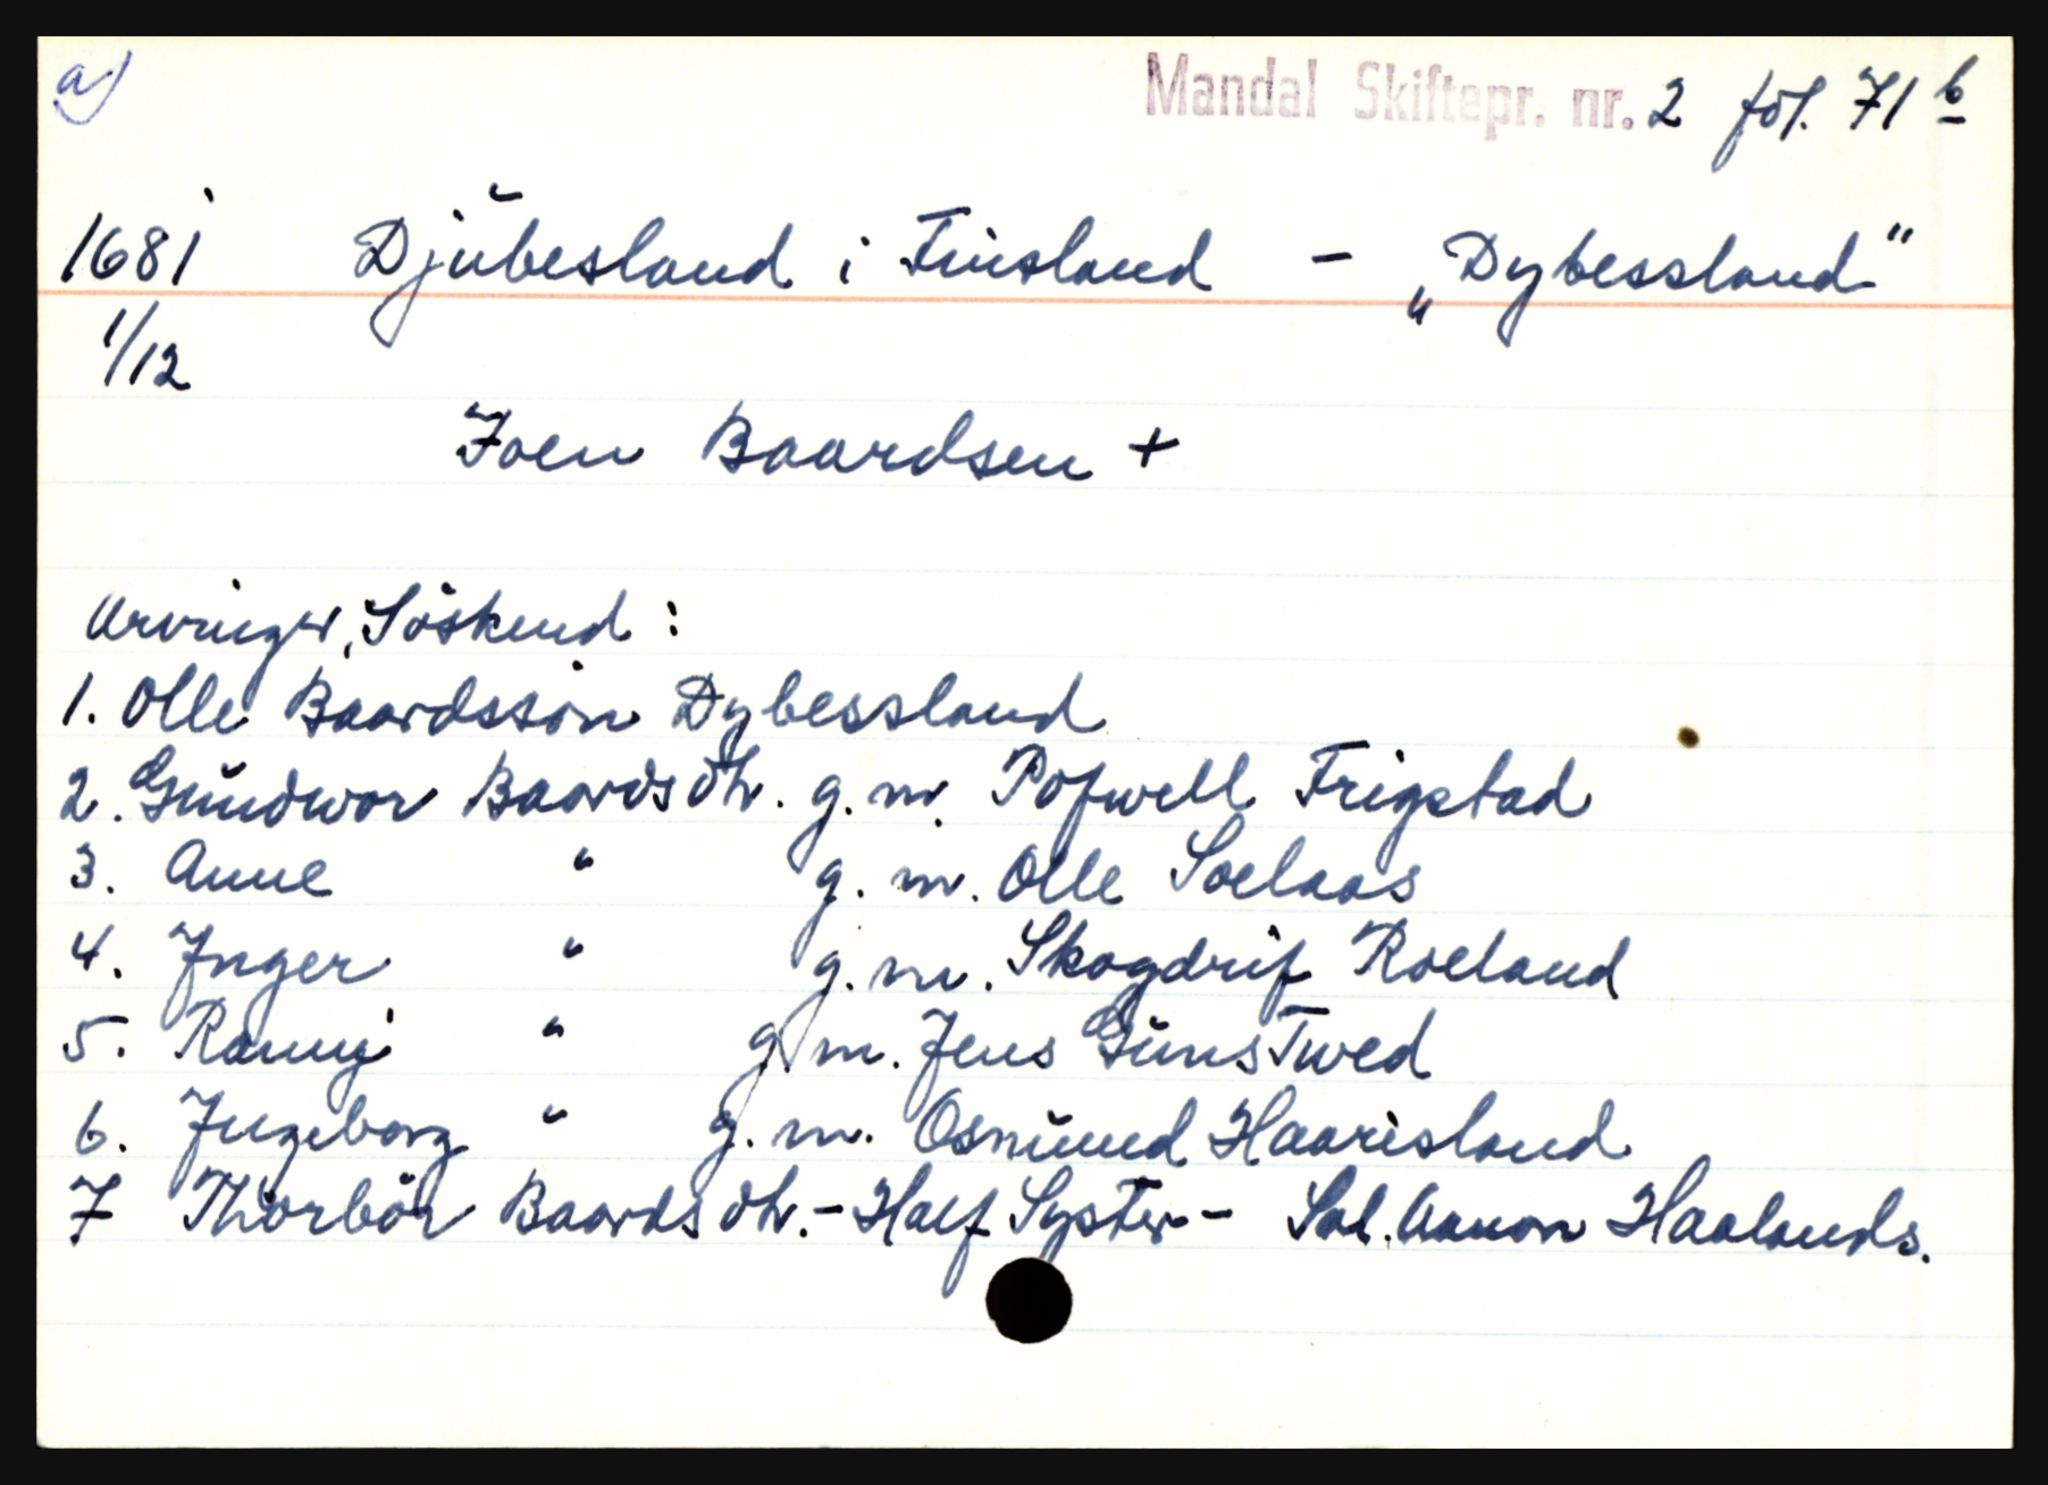 a)
Mandal Skiftepr. nr. 2 fol. 71 b
1681 Djŭbesland i Finsland - „Dybessland"
1/12
Joen Baardsen +
Arvinger, Söskend :
1. Olle Baardssön Dybessland
2. Gŭndwor Baardsdtr. g. m. Pofwell Frigstad
3. Anne " g. m. Olle Soelaas
4. Inger " g. m. Skogdrif Roeland
5. Ranny " g. m. Jens Gŭns Twed
6. Ingeborg " g. m. Osmund Haarisland
7 Thorbör Baardsdtr. - Half Syster - Sal. Aanon Haalands.